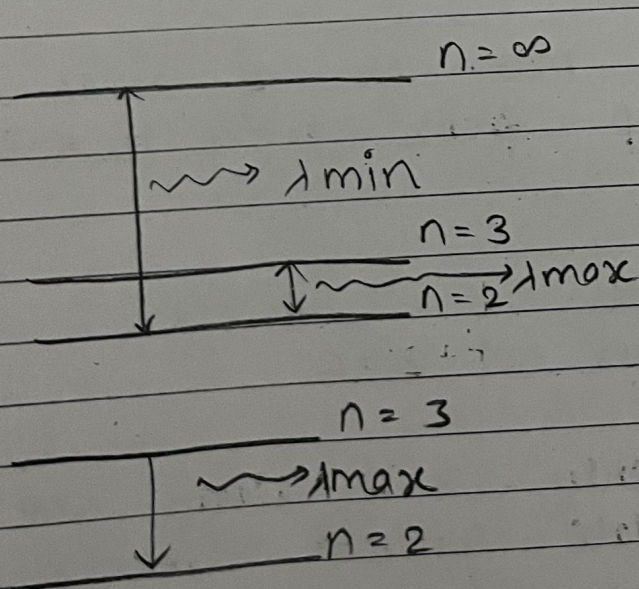 n = ∞
λ min
n = 3
λmax
n = 2
n = 3
λmax
n = 2